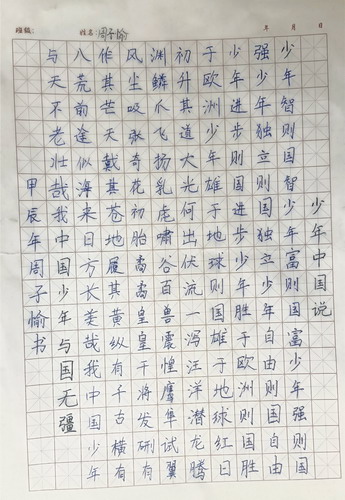 班级: 姓名:周子愉 年 月 日
少年中国说
少年智则国智少年富则国富少年强则国
强少年独立则国独立少年自由则国自由
少年进步则国进步少年胜于欧洲则国胜
于欧洲少年雄于地球则国雄于地球红日
初升其道大光何出伏流一泻汪洋潜龙腾
渊鳞爪飞扬乳虎啸谷百兽震惶鹰隼试翼
风尘吸张奇花初胎矞矞皇皇干将发硎有
作其芒天戴其苍地履其黄纵有千古横有
八荒前途似海来日方长美哉我中国少年
与天不老壮哉我中国少年与国无疆
甲辰年周子愉书